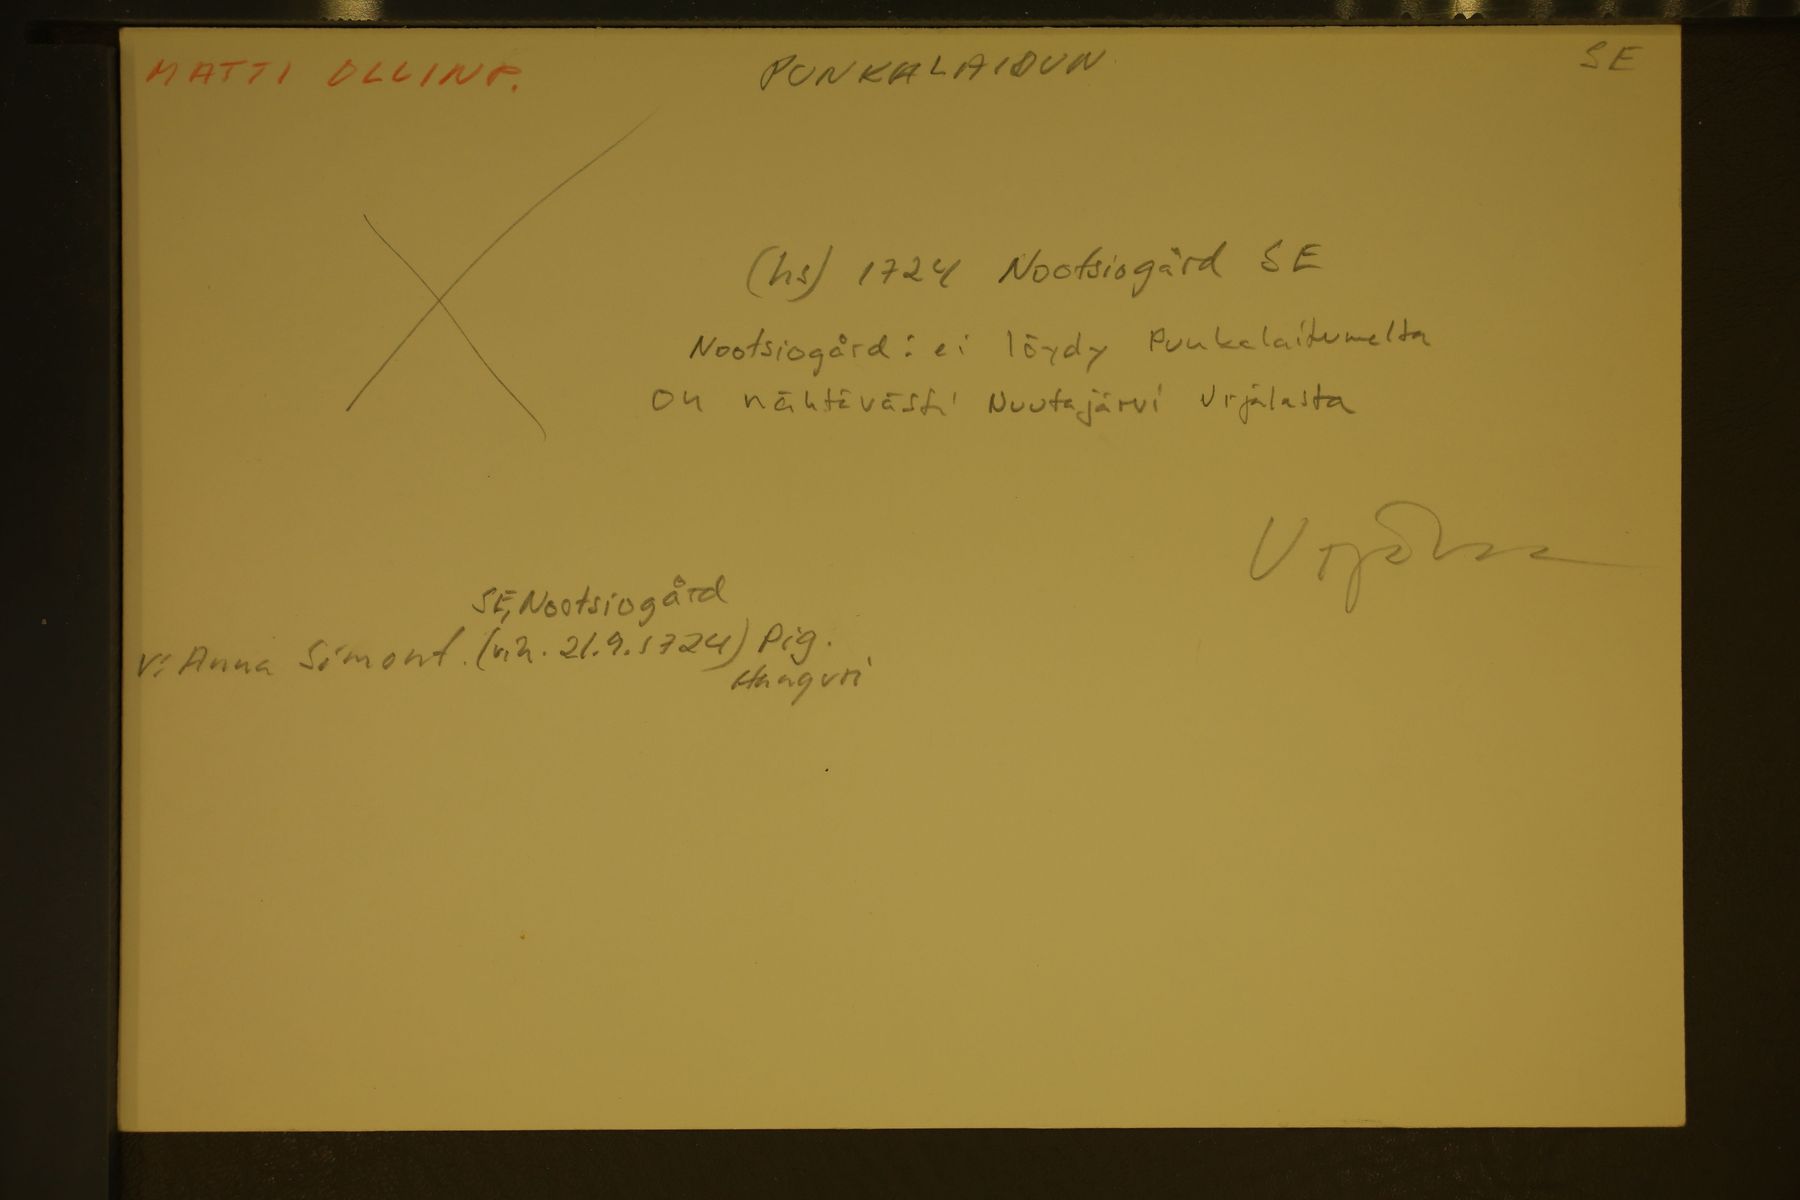 MATTI OLLINP. PUNKALAIDUN SE
(hs) 1724 Nootsiogård SE
Nootsiogård: ei löydy Punkalaitumelta
on nähtävästi Nuutajärvi Urjalasta
Urjala
SE, Nootsiogård
v: Anna Simont. (vih. 21.9.1724) Pig.
Haaguri